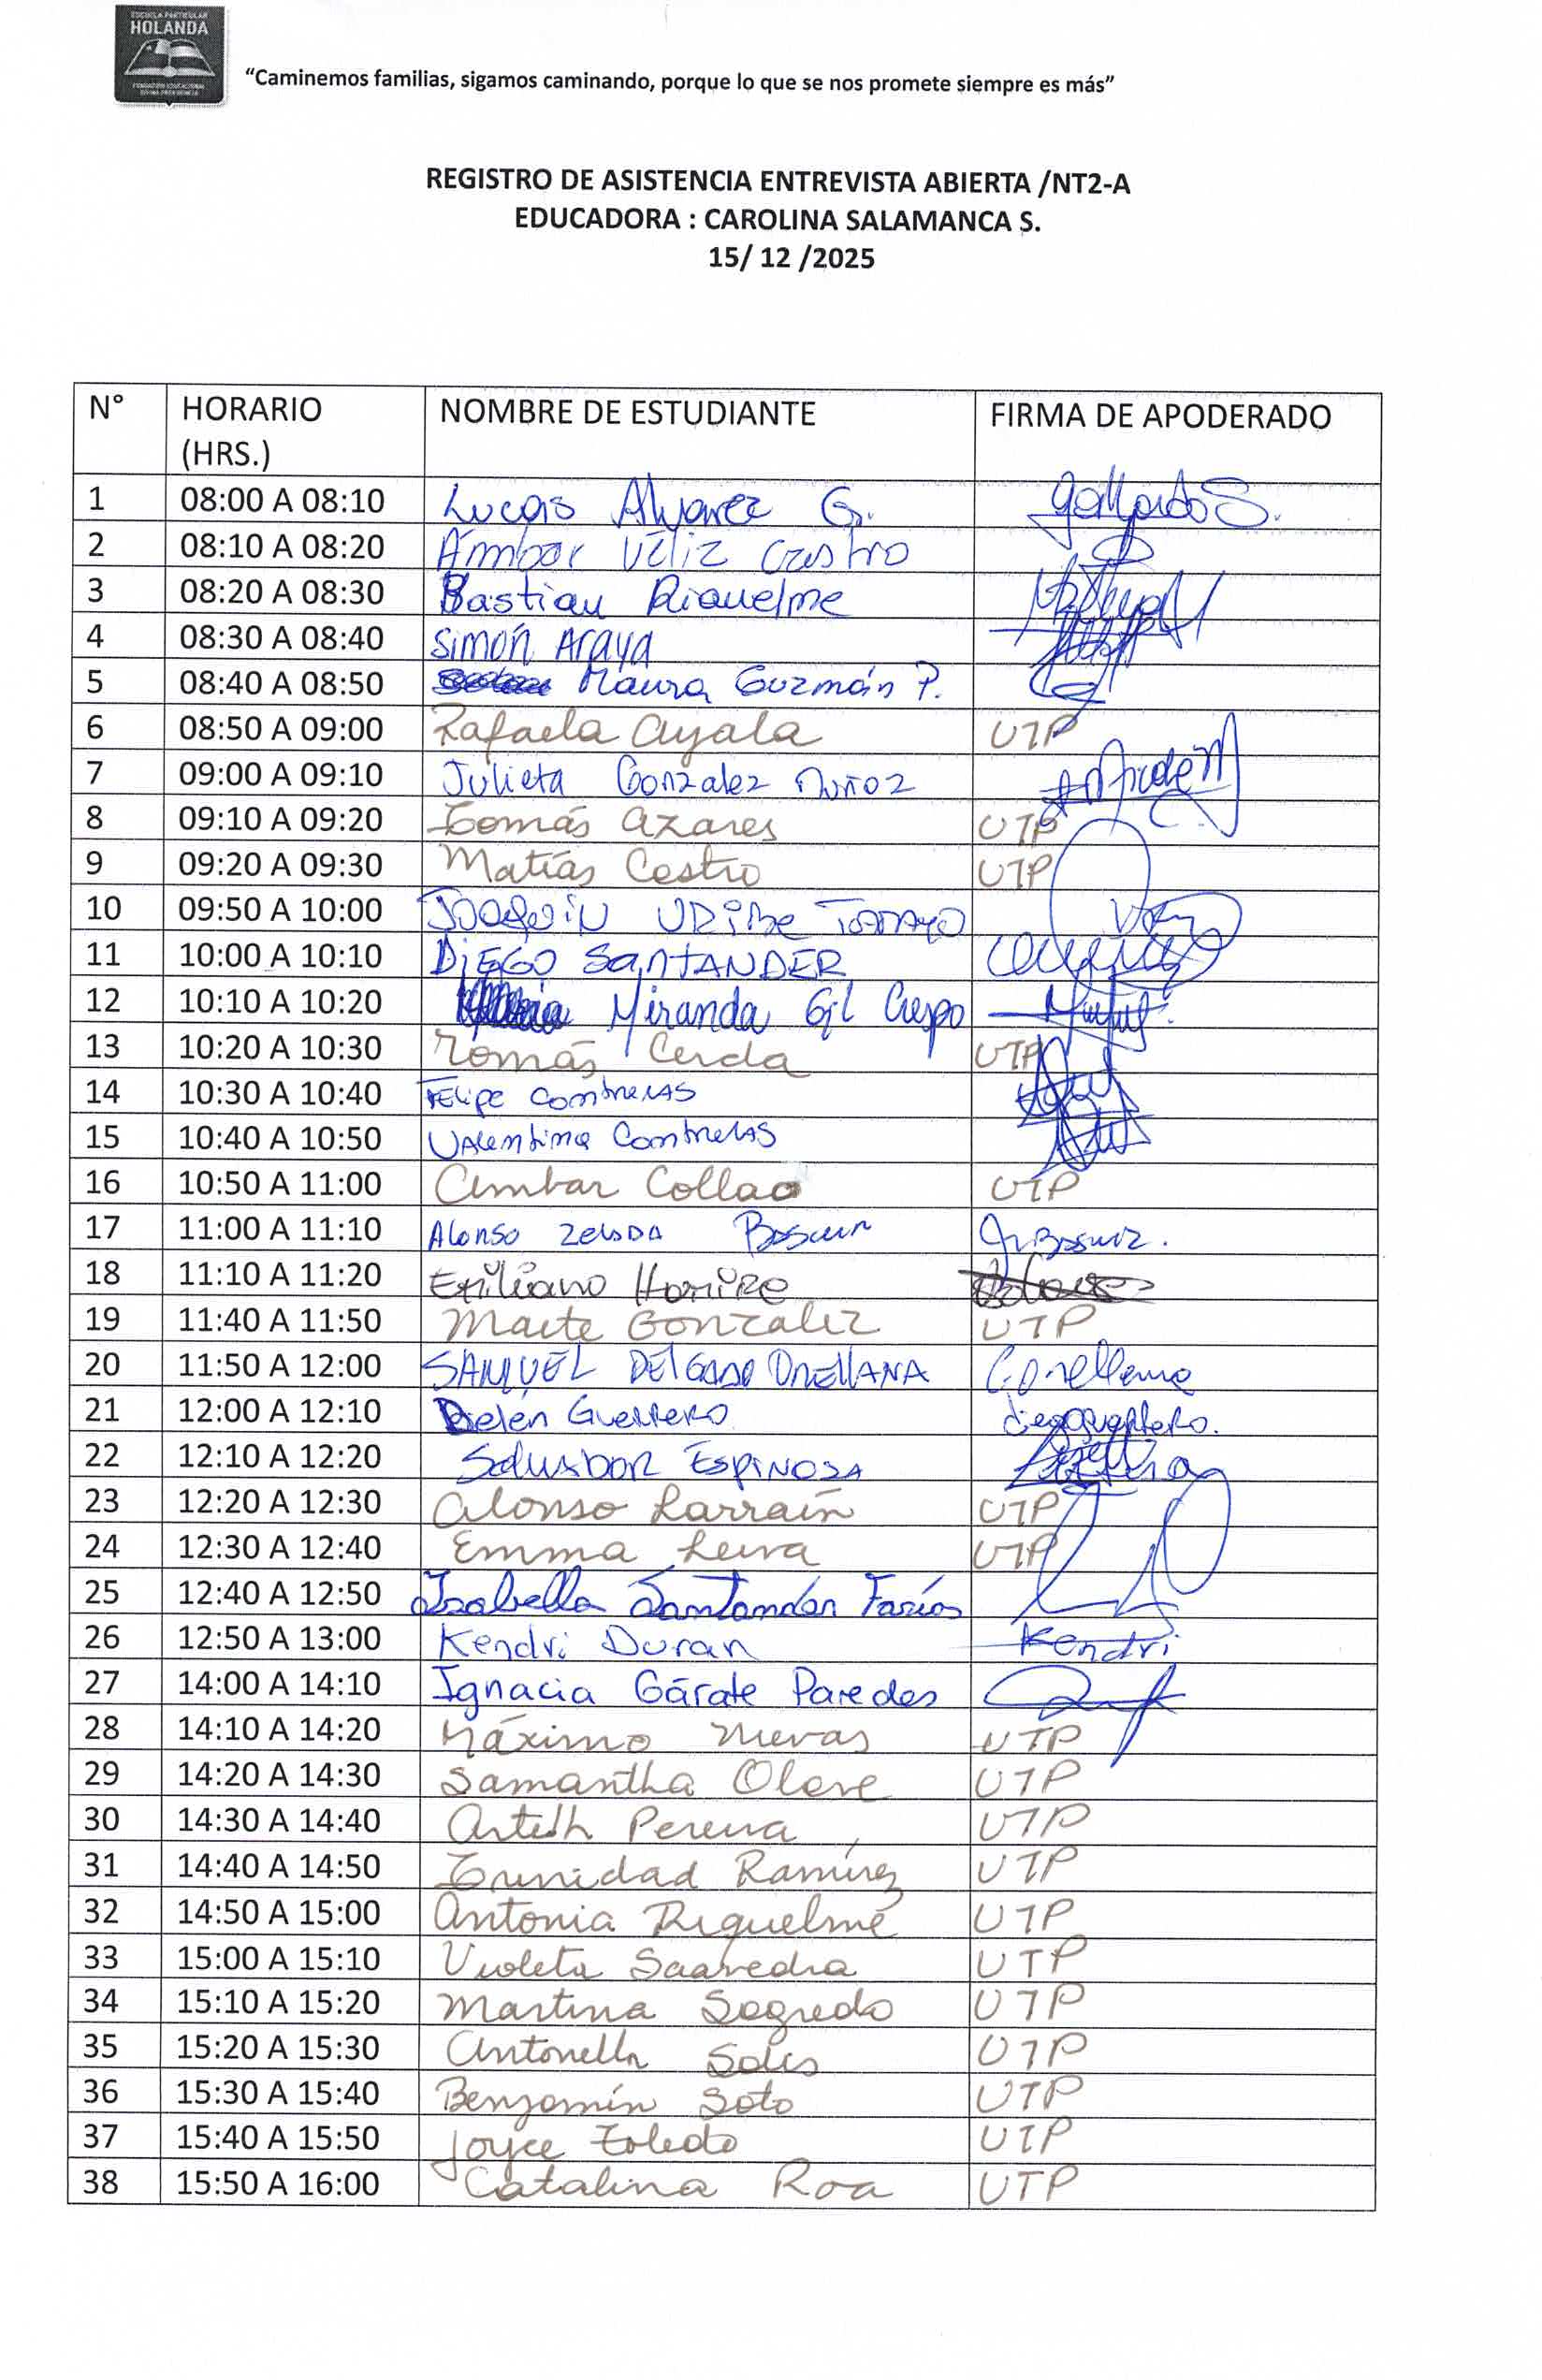 ESCUELA PARTICULAR
HOLANDA
FUNDACIÓN EDUCACIONAL
DIVINA PROVIDENCIA
“Caminemos familias, sigamos caminando, porque lo que se nos promete siempre es más”
REGISTRO DE ASISTENCIA ENTREVISTA ABIERTA /NT2-A
EDUCADORA : CAROLINA SALAMANCA S.
15/ 12 /2025
N° HORARIO (HRS.) NOMBRE DE ESTUDIANTE FIRMA DE APODERADO
1 08:00 A 08:10 Lucas Alvarez G. Gallardo S.
2 08:10 A 08:20 Ámbar Véliz Castro
3 08:20 A 08:30 Bastian Riquelme
4 08:30 A 08:40 Simón Araya
5 08:40 A 08:50 Maura Guzmán P.
6 08:50 A 09:00 Rafaela Ayala UTP
7 09:00 A 09:10 Julieta Gonzalez Muñoz
8 09:10 A 09:20 Tomás Azares UTP
9 09:20 A 09:30 Matías Castro UTP
10 09:50 A 10:00 Joaquin Uribe Tamayo
11 10:00 A 10:10 DIEGO SANTANDER
12 10:10 A 10:20 Miranda Gil Crespo
13 10:20 A 10:30 Tomás Cerda UTP
14 10:30 A 10:40 Felipe Contreras
15 10:40 A 10:50 Valentina Contreras
16 10:50 A 11:00 Ambar Collao UTP
17 11:00 A 11:10 Alonso Zelada
18 11:10 A 11:20 Emiliano
19 11:40 A 11:50 Maite Gonzalez UTP
20 11:50 A 12:00 SAMUEL DELGADO ORELLANA C. Orellana
21 12:00 A 12:10 Belén Guerrero diego guerrero.
22 12:10 A 12:20 Salvador Espinosa
23 12:20 A 12:30 Alonso Larraín UTP
24 12:30 A 12:40 Emma Leiva UTP
25 12:40 A 12:50 Isabella Santander Farías
26 12:50 A 13:00 Kendri Duran Kendri
27 14:00 A 14:10 Ignacia Gárate Paredes
28 14:10 A 14:20 Máximo Nievas UTP
29 14:20 A 14:30 Samantha Olave UTP
30 14:30 A 14:40 Pereira UTP
31 14:40 A 14:50 Trinidad Ramírez UTP
32 14:50 A 15:00 Antonia Riquelme UTP
33 15:00 A 15:10 Violeta Saavedra UTP
34 15:10 A 15:20 Martina Sagredo UTP
35 15:20 A 15:30 Antonella Solis UTP
36 15:30 A 15:40 Benjamín Soto UTP
37 15:40 A 15:50 Joyce Toledo UTP
38 15:50 A 16:00 Catalina Roa UTP